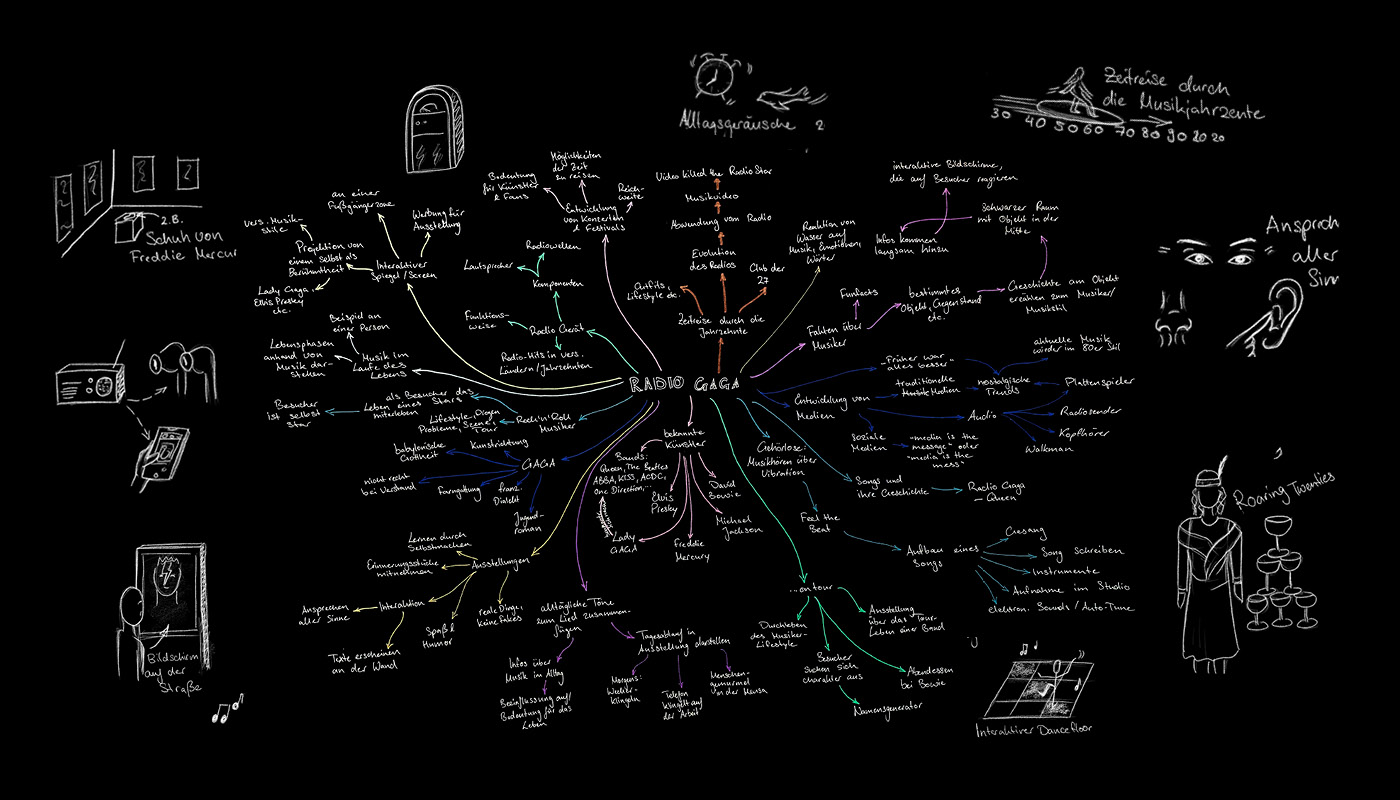 Alltagsgeräusche
Zeitreise durch
die Musikjahrzente
30 40 50 60 70 80 90 20 20
z.B.
Schuh von
Freddie Mercur
Ansprach
aller
Sinn
Roaring Twenties
Interaktiver Dancefloor
Bildschirm
auf der
Straße
RADIO GAGA
an einer
Fußgängerzone
Werbung für
Ausstellung
vers. Musik-
stile
Projektion von
einem selbst als
Berühmtheit
Interaktiver
Spiegel/Screen
Lady Gaga,
Elvis Presley
etc.
Beispiel an
einer Person
Lebensphasen
anhand von
Musik dar-
stellen
Musik im
Laufe des
Lebens
Besucher
ist selbst
Star
als Besucher das
Leben eines Stars
miterleben
Lifestyle, Drogen
Probleme, Szene,
Tour
Rock'n'Roll
Musiker
Radiowellen
Lautsprecher
Komponenten
Funktions-
weise
Radio Gerät
Radio-Hits in vers.
Ländern/Jahrzehnten
Bedeutung
für Künstler
& Fans
Möglichkeiten
der Zeit
zu reisen
Reich-
weite
Entwicklung
von Konzerten
& Festivals
Video killed the Radio Star
Musikvideo
Abwendung vom Radio
Evolution
des Radios
Club der
27
Outfits,
Lifestyle etc.
Zeitreise durch die
Jahrzehnte
Reaktion von
Wasser auf
Musik, Emotionen,
Wörter
interaktive Bildschirme,
die auf Besucher reagieren
Schwarzer Raum
mit Objekt in der
Mitte
Infos kommen
langsam hinzu
Funfacts
bestimmtes
Objekt, Gegenstand
etc.
Geschichte am Objekt
erzählen zum Musiker/
Musikstil
Fakten über
Musiker
"Früher war
alles besser"
aktuelle Musik
wieder im 80er Stil
traditionelle
Medien
nostalgische
Trends
Plattenspieler
Entwicklung von
Medien
Audio
Radiosender
Kopfhörer
Walkman
Soziale
Medien
"media is the
message" oder
"media is the
mess"
Songs und
ihre Geschichte
Radio Gaga
– Queen
Gehörlose:
Musikhören über
Vibration
Feel the
Beat
Aufbau eines
Songs
Gesang
Song Schreiben
Instrumente
Aufnahme im Studio
elektron. Sounds / Auto-Tune
babylonische
Gottheit
Kunstrichtung
GAGA
nicht recht
bei Verstand
Farngattung
franz.
Dialekt
Jugend-
roman
bekannte
Künstler
Bands:
Queen, The Beatles
ABBA, KISS, ACDC,
One Direction,...
Elvis
Presley
David
Bowie
Michael
Jackson
Lady
GAGA
Freddie
Mercury
Lernen durch
Selbstmachen
Erinnerungsstücke
mitnehmen
Ausstellungen
Ansprechen
aller Sinne
Interaktion
Texte erscheinen
an der Wand
Spaß &
Humor
reale Dinge,
keine fakes
alltägliche Töne
zum Lied zusammen-
fügen
Tagesablauf in
Ausstellung darstellen
Infos über
Musik im Alltag
Beeinflussung auf/
Bedeutung für das
Leben
Morgens:
Wecker-
klingeln
Telefon
klingelt auf
der Arbeit
Menschen-
gemurmel
in der Mensa
...on tour
Durchleben
des Musiker-
Lifestyle
Besucher
suchen sich
charakter aus
Namensgenerator
Abendessen
bei Bowie
Ausstellung
über das Tour-
Leben einer Band